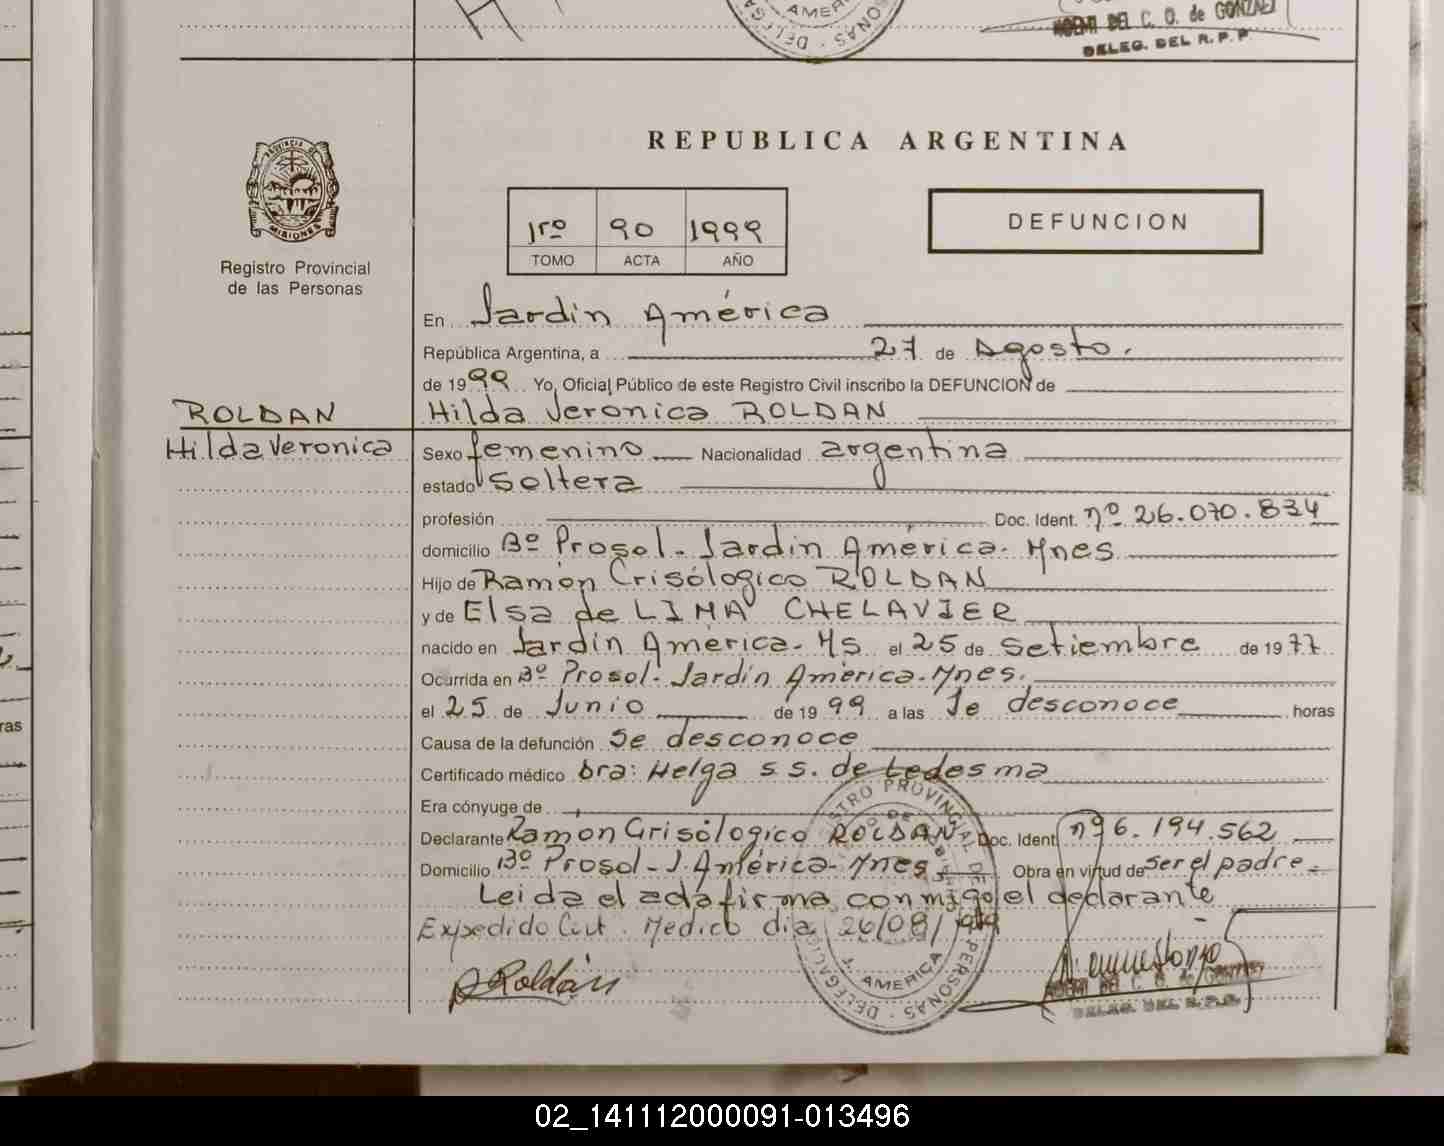 AMER
NOEMI DEL C. O. de GONZALEZ
DELEG. DEL R. P. P.
REPUBLICA ARGENTINA
PROVINCIA DE
MISIONES
Registro Provincial
de las Personas
1ro 90 1999
TOMO ACTA AÑO
DEFUNCION
En Jardín América
República Argentina, a 27 de Agosto.
de 1999 Yo, Oficial Público de este Registro Civil inscribo la DEFUNCION de
ROLDAN Hilda Veronica ROLDAN
Hilda Veronica Sexo femenino Nacionalidad argentina
estado Soltera
profesión Doc. Ident. nº 26.070.834
domicilio Bº Prosol - Jardín América - Mnes
Hijo de Ramón Crisólogico ROLDAN
y de Elsa de LIMA CHELAVIER
nacido en Jardín América - Ms el 25 de Setiembre de 1977
Ocurrida en Bº Prosol - Jardín América - Mnes.
el 25 de Junio de 1999 a las Se desconoce horas
Causa de la defunción Se desconoce
Certificado médico Dra: Helga S S. de Ledesma
Era cónyuge de
Declarante Ramon Crisólogico ROLDAN Doc. Ident nº 6.194.562
Domicilio Bº Prosol - J. América - Mnes Obra en virtud de ser el padre
Leida el acta firma conmigo el declarante
Expedido Cert. Medico dia 26/08/1999
Roldán
J. AMERICA
02_141112000091-013496